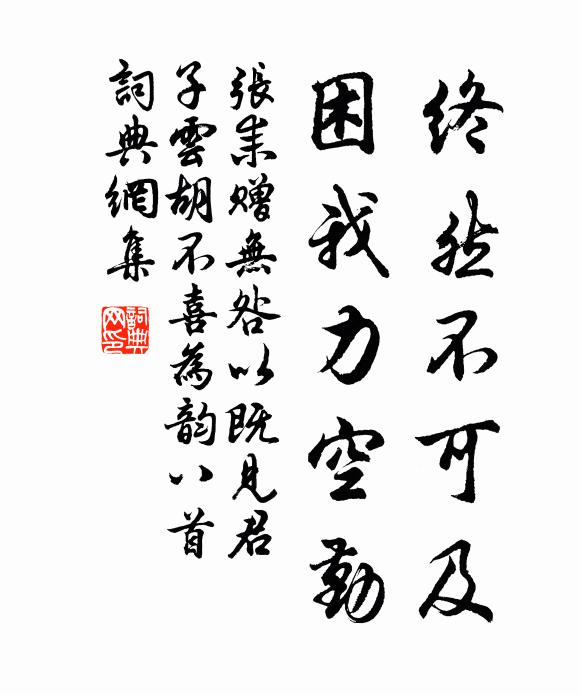 终然不可及
困我力空勤
張耒贈無咎以既見君
子雲胡不喜為韵八首
詞典網集
詞典网印